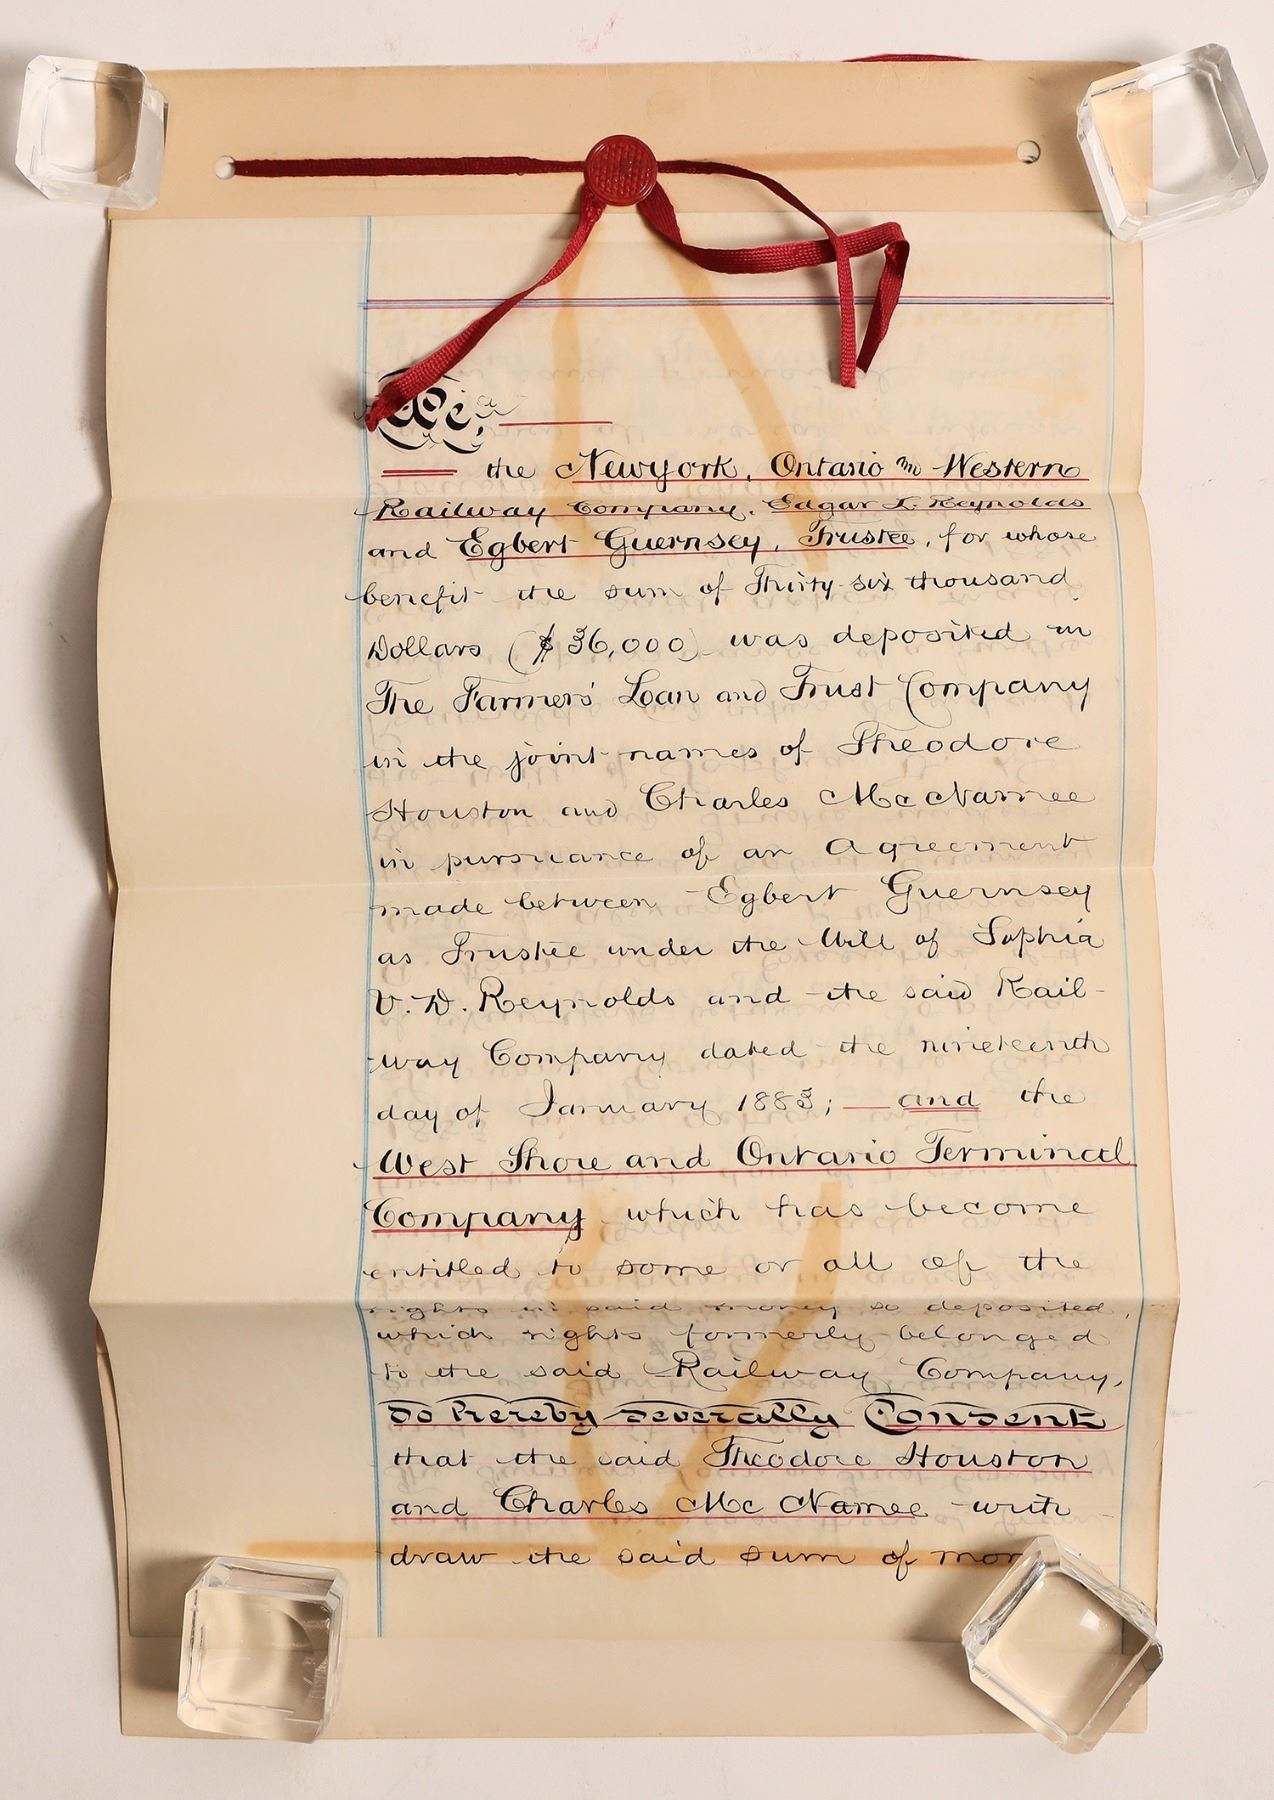 We
the New york, Ontario and Western
Railway Company, Edgar L. Reynolds
and Egbert Guernsey, Trustee, for whose
benefit the sum of Thirty-six thousand
Dollars ($36,000) was deposited in
The Farmers' Loan and Trust Company
in the joint names of Theodore
Houston and Charles Mc Namee
in pursuance of an Agreement
made between Egbert Guernsey
as Trustee under the Will of Sophia
V. D. Reynolds and the said Rail-
way Company dated the nineteenth
day of January 1883; and the
West Shore and Ontario Terminal
Company which has become
entitled to some or all of the
rights in said money so deposited,
which rights formerly belonged
to the said Railway Company,
do hereby severally Consent
that the said Theodore Houston
and Charles Mc Namee with
draw the said sum of